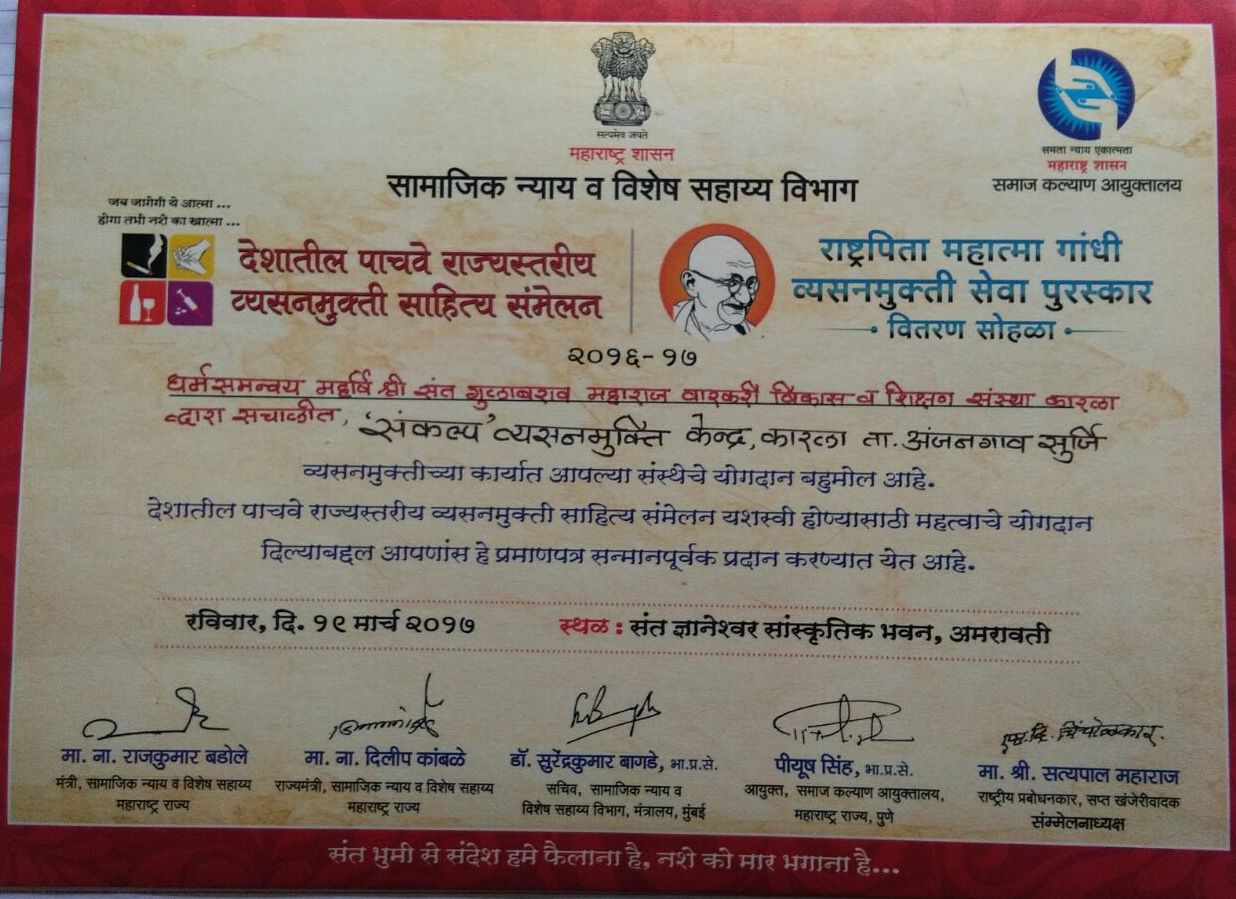 सत्यमेव जयते
महाराष्ट्र शासन
सामाजिक न्याय व विशेष सहाय्य विभाग
समता न्याय एकात्मता
महाराष्ट्र शासन
समाज कल्याण आयुक्तालय
जब जागेगी ये आत्मा ...
होगा तभी नशे का खात्मा ...
देशातील पाचवे राज्यस्तरीय
व्यसनमुक्ती साहित्य संमेलन
राष्ट्रपिता महात्मा गांधी
व्यसनमुक्ती सेवा पुरस्कार
वितरण सोहळा
२०१६-१७
धर्मसमन्वय महर्षि श्री संत गुलाबराव महाराज वारकरी विकास व शिक्षण संस्था कारला
द्वारा सचाळीत, 'संकल्प' व्यसनमुक्ति केन्द्र, कारला ता. अंजनगाव सुर्जि
व्यसनमुक्तीच्या कार्यात आपल्या संस्थेचे योगदान बहुमोल आहे.
देशातील पाचवे राज्यस्तरीय व्यसनमुक्ती साहित्य संमेलन यशस्वी होण्यासाठी महत्वाचे योगदान
दिल्याबद्दल आपणांस हे प्रमाणपत्र सन्मानपूर्वक प्रदान करण्यात येत आहे.
रविवार, दि. १९ मार्च २०१७ स्थळ : संत ज्ञानेश्वर सांस्कृतिक भवन, अमरावती
मा. ना. राजकुमार बडोले
मंत्री, सामाजिक न्याय व विशेष सहाय्य
महाराष्ट्र राज्य
मा. ना. दिलीप कांबळे
राज्यमंत्री, सामाजिक न्याय व विशेष सहाय्य
महाराष्ट्र राज्य
डॉ. सुरेंद्रकुमार बागडे, भा.प्र.से.
सचिव, सामाजिक न्याय व
विशेष सहाय्य विभाग, मंत्रालय, मुंबई
पीयूष सिंह, भा.प्र.से.
आयुक्त, समाज कल्याण आयुक्तालय,
महाराष्ट्र राज्य, पुणे
मा. श्री. सत्यपाल महाराज
राष्ट्रीय प्रबोधनकार, सप्त खंजेरीवादक
संम्मेलनाध्यक्ष
संत भुमी से संदेश हमे फैलाना है, नशे को मार भगाना है...